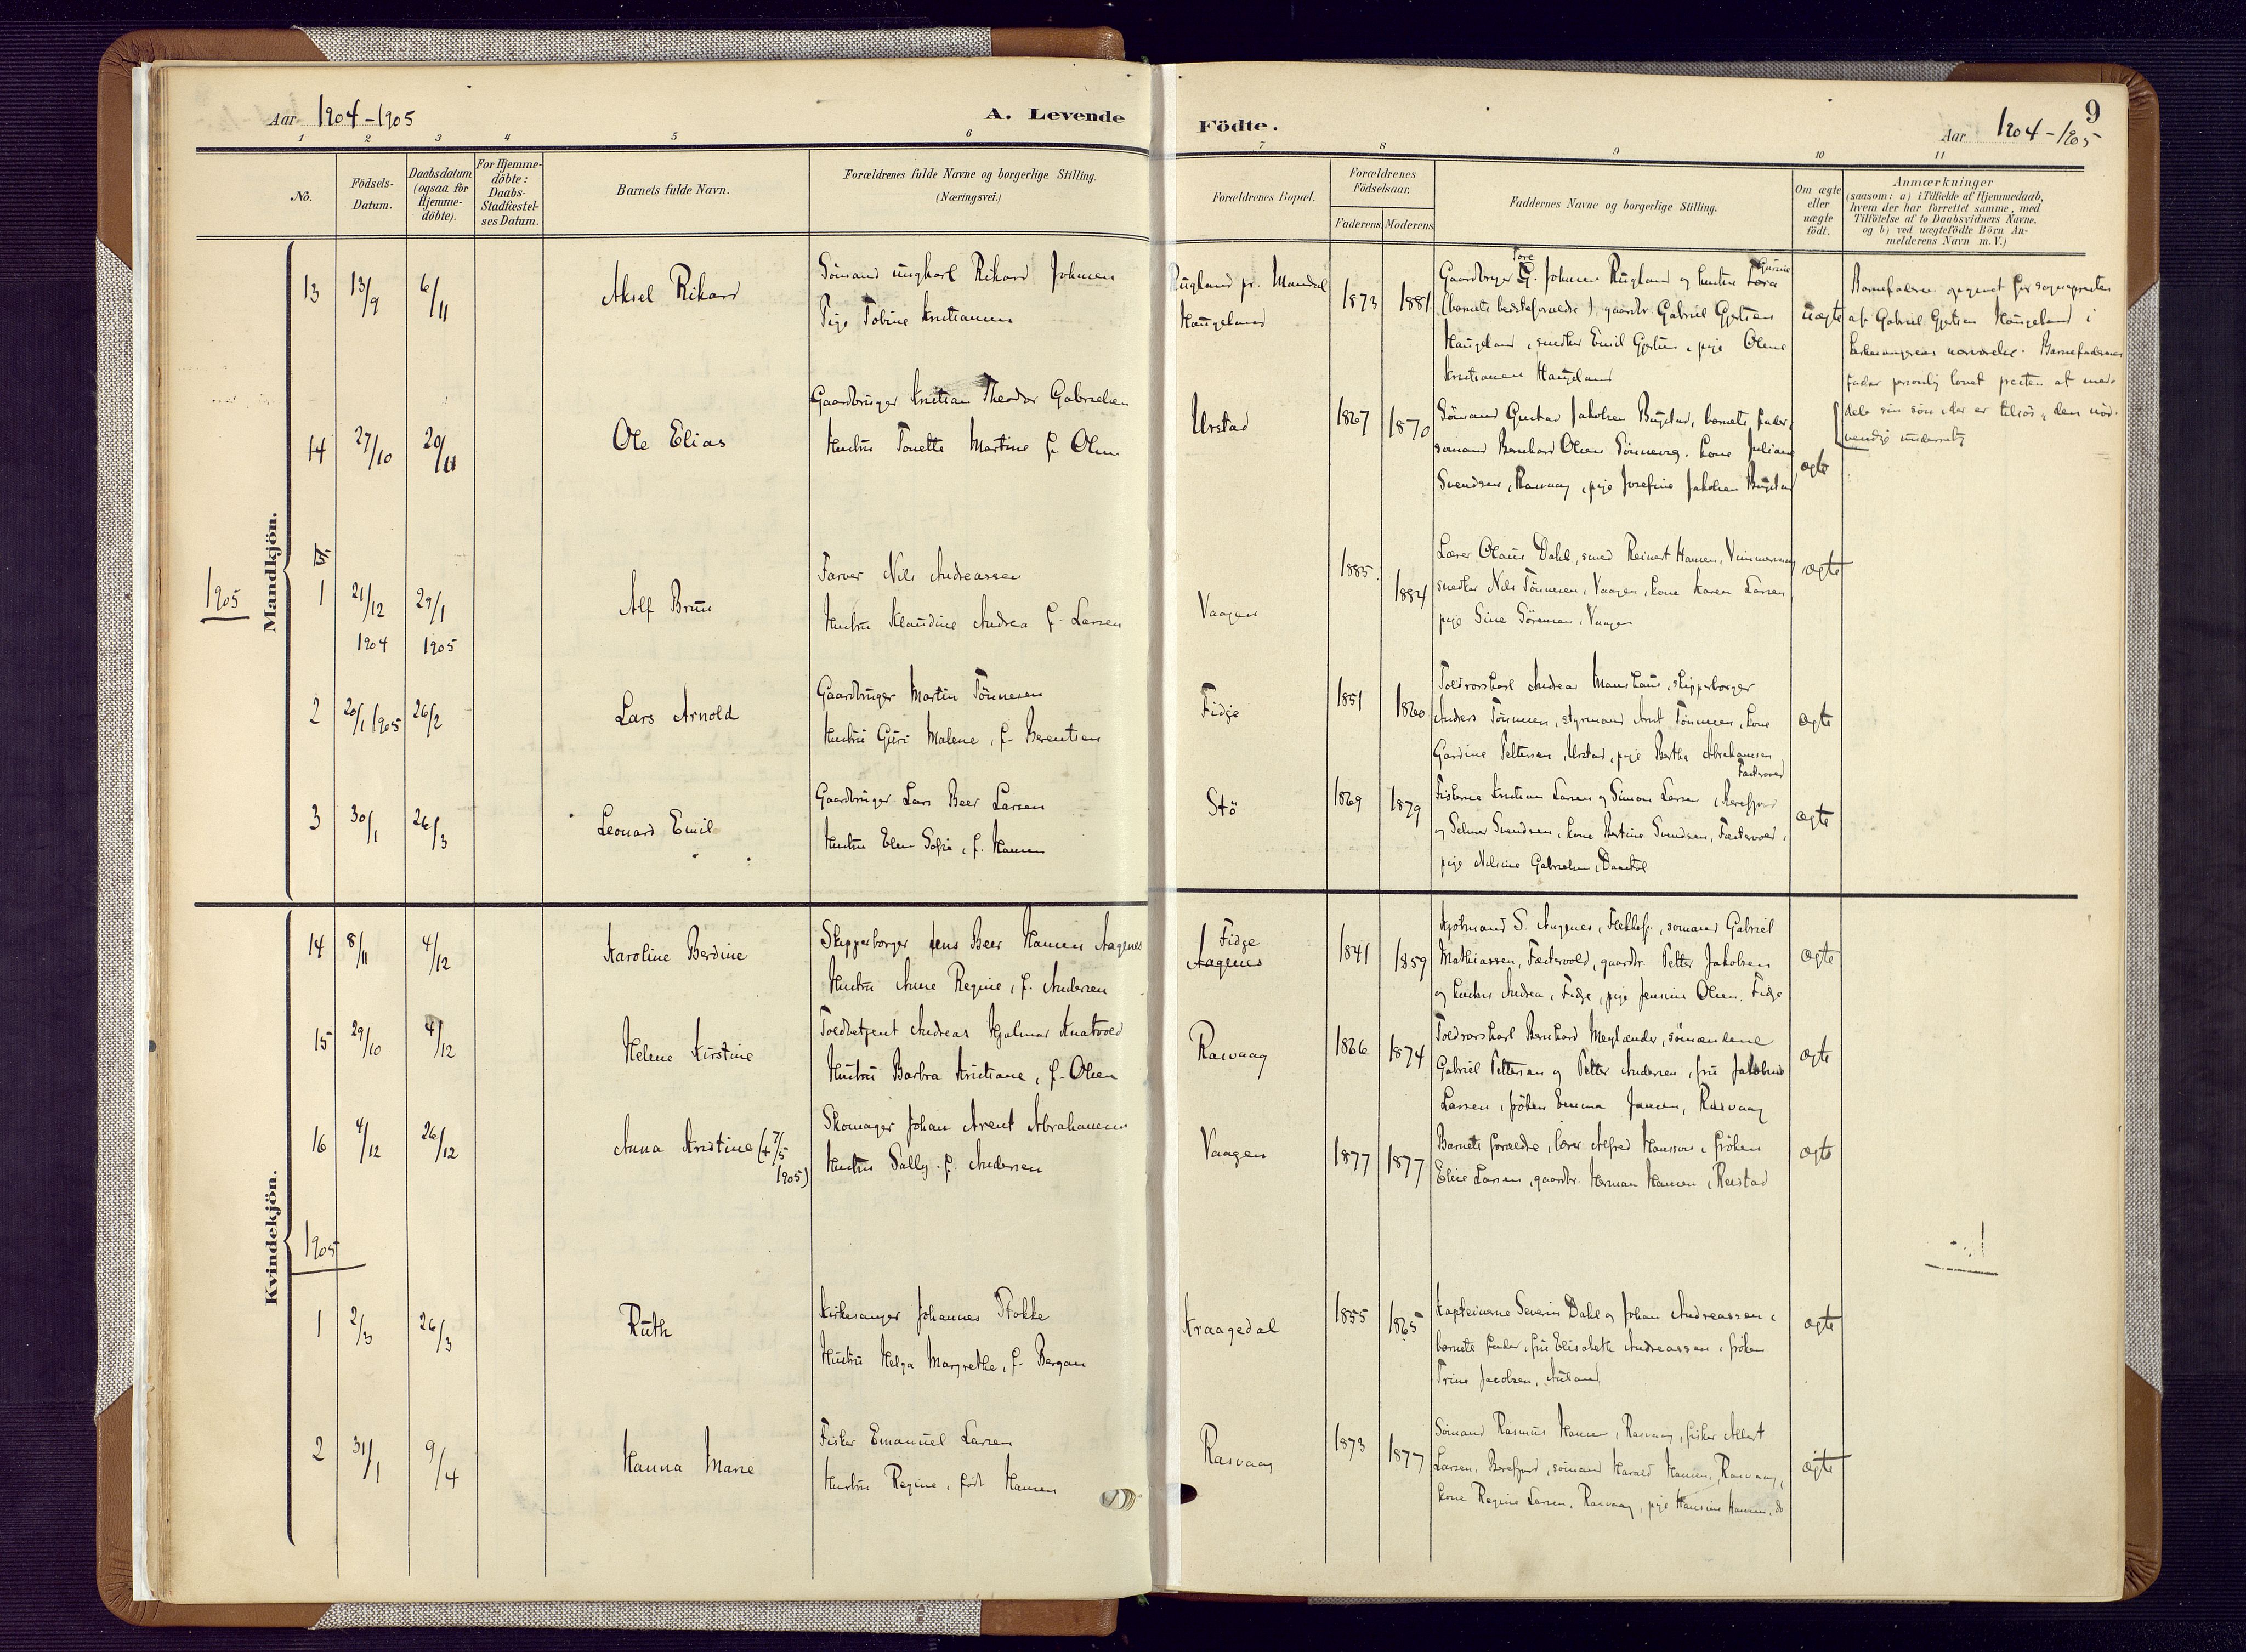 Aar 1904-1905
A. Levende
Födte.
Aar 1904-1905
9
1 2 3 4 5 6 7 8 9 10 11
No.
Födsels-
Datum.
Daabsdatum
(ogsaa for
Hjemme-
döbte).
For Hjemme-
döbte:
Daabs-
Stadfæstel-
ses Datum.
Barnets fulde Navn.
Forældrenes fulde Navne og borgerlige Stilling.
(Næringsvei.)
Forældrenes Bopæl.
Forældrenes
Födselsaar.
Faderens
Moderens
Faddernes Navne og borgerlige Stilling.
Om ægte
eller
uægte
födt.
Anmærkninger
(saasom: a) i Tilfælde af Hjemmedaab,
hvem der har forrettet samme, med
Tilföielse af to Daabsvidners Navne,
og b) ved uægtefödte Börn An-
melderens Navn m. V.)
Mandkjön.
13
13/9
6/11
Aksel Rikard
Sömand ungkarl Rikard Johnsen
Pige Tobine Kristiansen
Rugland pr. Mandal
Haugeland
1873
1881
Tore
Gurine
Gaardbruger G. Johnsen Rugland og hustru Tora
(barnets bedsteforældre), gaardbr. Gabriel Gjertsen
Haugeland, snedker Emil Gjertsen, pige Olene
Kristiansen Haugeland
uægte
Barnefaderen opgivet for sognepresten
af Gabriel Gjertsen Haugeland i
kirkesangerens nærværelse. Barnefaderens
fader personlig lovet presten at med-
dele sin sön, der er tilsös, den nöd-
vendige underretn.
14
27/10
20/11
Ole Elias
Gaardbruger Kristian Theodor Gabrielsen
Hustru Tonette Martine f. Olsen
Urstad
1867
1870
Sömand Gustav Jakobsen Bugstad, barnets fader,
sömand Bernhard Olsen Sönnevig, kone Juliane
Svendsen, Rasvaag, pige Josefine Jakobsen Bugstad
ægte
1905
1
21/12
1904
29/1
1905
Alf Brun
Farver Nils Andreassen
Hustru Klaudine Andrea f. Larsen
Vaagen
1885
1884
Lærer Olaus Dahl, smed Reinert Hansen,
snedker Nils Tönnesen, Vaagen, kone Karen Larsen
pige Sine Sörensen, Vaagen
ægte
2
20/1 1905
26/2
Lars Arnold
Gaardbruger Martin Tönnesen
Hustru Guri Malene, f. Berentsen
Fidje
1851
1860
Toldrorskarl Andreas Monshaus, skipperborger
Anders Tönnesen, styrmand Arnt Tönnesen, kone
Gardine Pettersen, Urstad, pige Bertha Abrahamsen
Fædevold
ægte
3
30/1
26/3
Leonard Emil
Gaardbruger Lars Beer Larsen
Hustru Elen Sofie, f. Hansen
Stö
1869
1879
Fiskerne Kristian Larsen og Simon Larsen,
og Selmer Svendsen, kone Bertine Svendsen, Fædevold,
pige Nilsine Gabrielsen,
ægte
Kvindekjön.
14
8/11
4/12
Karoline Berdine
Skipperborger Jens Beer Hansen Aagenes
Hustru Anne Regine, f. Andersen
Fidje
Aagenes
1841
1859
Kjöbmand S. Aagenes, Flekkefj., sömand Gabriel
Mathiassen, Fædevold, gaardbr. Petter Jakobsen
og hustru Andrea, Fidje, pige Jensine Olsen, Fidje
ægte
15
29/10
4/12
Helene Kirstine
Toldbetjent Andreas Hjalmar Knatvold
Hustru Barbra Kristiane, f. Olsen
Rasvaag
1866
1874
Toldrorskarl Bernhard Meglænder, sömændene
Gabriel Pettersen og Petter Andersen, fru Jakobine
Larsen, fröken Emma Jansen, Rasvaag
ægte
16
4/12
26/12
Anna Kristine (+ 7/5
1905)
Skomager Johan Arent Abrahamsen
Hustru Sally f. Andersen
Vaagen
1877
1877
Barnets forældre, lærer Alfred Hansson, fröken
Elise Larsen, gaardbr. Herman Hansen, Reistad
ægte
1905
1
2/3
26/3
Ruth
Kirkesanger Johannes Stokke
Hustru Helga Margrethe, f. Bergan
Kraagedal
1855
1865
Kapteinerne Severin Dahl og Johan Andreassen,
barnets fader, fru Elisabeth Andreassen, fröken
Trine Jacobsen,
ægte
2
31/1
9/4
Hanna Marie
Fisker Emanuel Larsen
Hustru Regine, född Hansen
Rasvaag
1873
1877
Sömand Rasmus Hansen, Rasvaag, fisker Albert
Larsen, sömand Harald Hansen, Rasvaag,
kone Regine Larsen, Rasvaag, pige Hansine Hansen, do
ægte